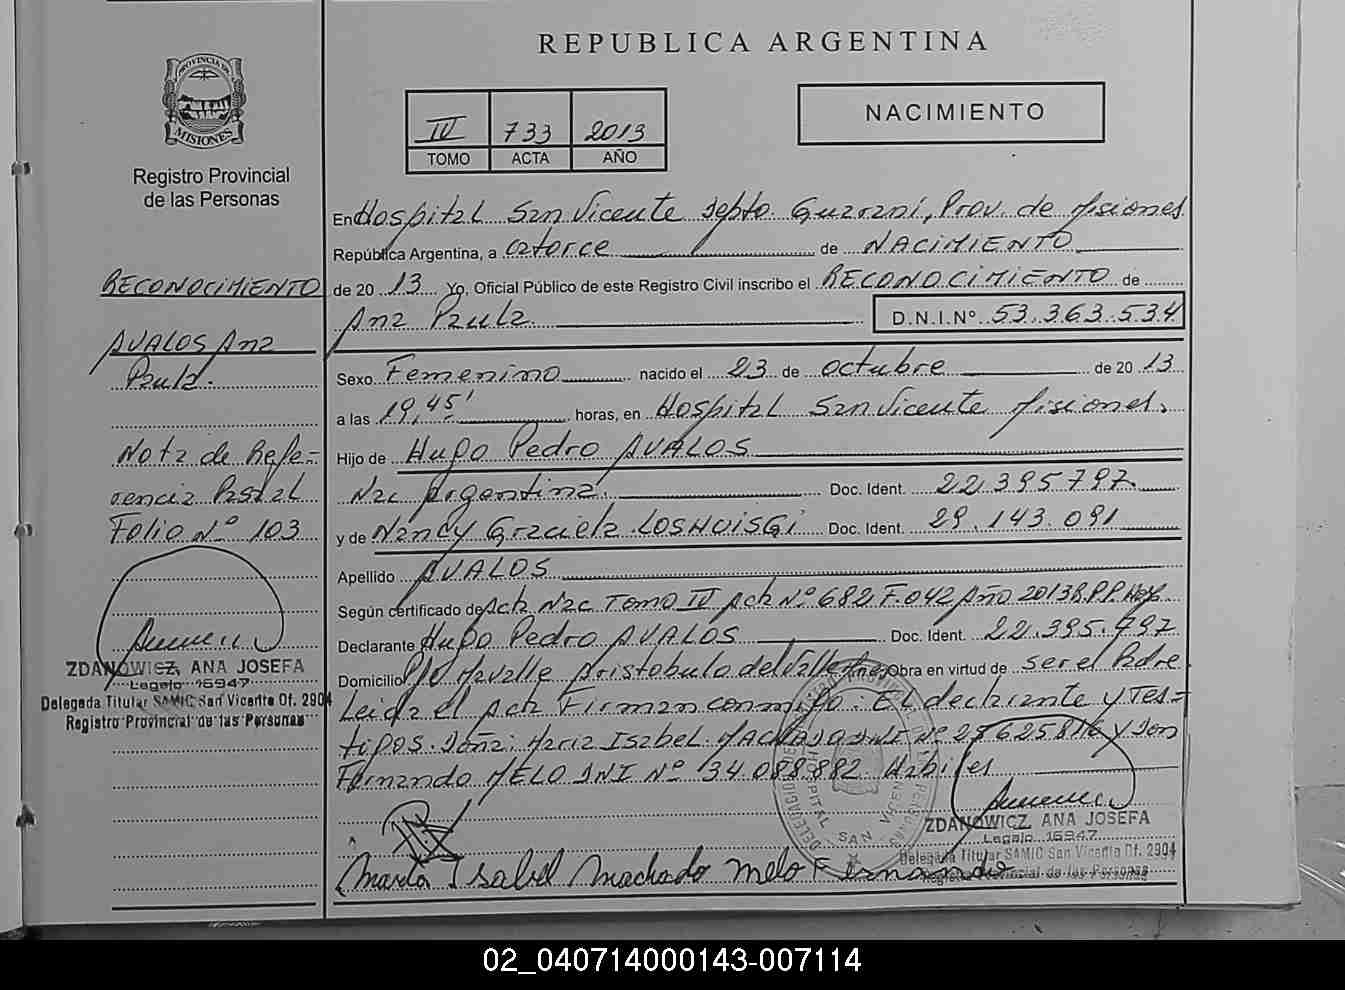 REPUBLICA ARGENTINA
PROVINCIA DE
MISIONES
Registro Provincial
de las Personas
IV 733 2013
TOMO ACTA AÑO
NACIMIENTO
En Hospital San Vicente Depto. Guaraní, Prov. de Misiones
República Argentina, a catorce de NACIMIENTO
de 20 13 Yo, Oficial Público de este Registro Civil inscribo el RECONOCIMIENTO de
Ana Paula D.N.I.Nº 53.363.534
Sexo Femenino nacido el 23 de octubre de 20 13
a las 19,45' horas, en Hospital San Vicente Misiones.
Hijo de Hugo Pedro AVALOS
Nac Argentina. Doc. Ident. 22.395.797
y de Nancy Graciela LOSHOISGI Doc. Ident. 29.143.091
Apellido AVALOS
Según certificado de Acta Nac Tomo IV Acta Nº 682 F.042 Año 2013 R.P.P.
Declarante Hugo Pedro AVALOS Doc. Ident. 22.395.797
Domicilio Aristobulo del Valle Obra en virtud de ser el Padre
Leida el Acta Firman conmigo: El declarante y Tes-
tigos. Doña: Maria Isabel MACHADO DNI Nº y Don
Fernando MELO DNI Nº 34.088.882 Habiles
ZDANOWICZ, ANA JOSEFA
Legajo 16947
Delegada Titular SAMIC San Vicente Of. 2904
Registro Provincial de las Personas
Marta Isabel Machado Melo Fernando
RECONOCIMIENTO
AVALOS Ana
Paula.
Nota de Refe-
rencia Pastal
Folio Nº 103
ZDANOWICZ, ANA JOSEFA
Legajo 16947
Delegada Titular SAMIC San Vicente Of. 2904
Registro Provincial de las Personas
02_040714000143-007114